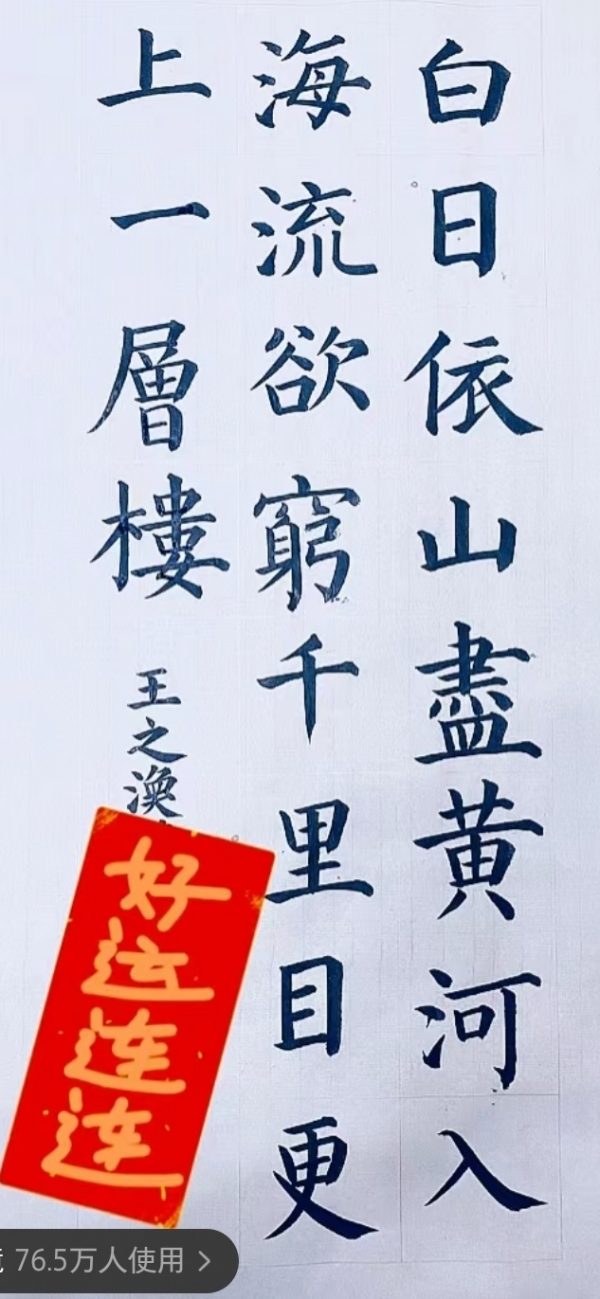 白日依山盡黄河入
海流欲窮千里目更
上一層樓
王之渙
好运连连
76.5万人使用